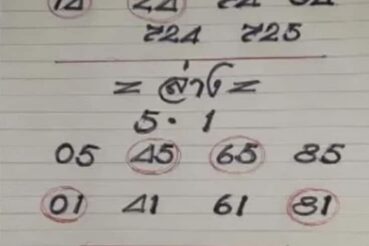 14 24 74 84
724 725
= ล่าง =
5 · 1
05 45 65 85
01 41 61 81